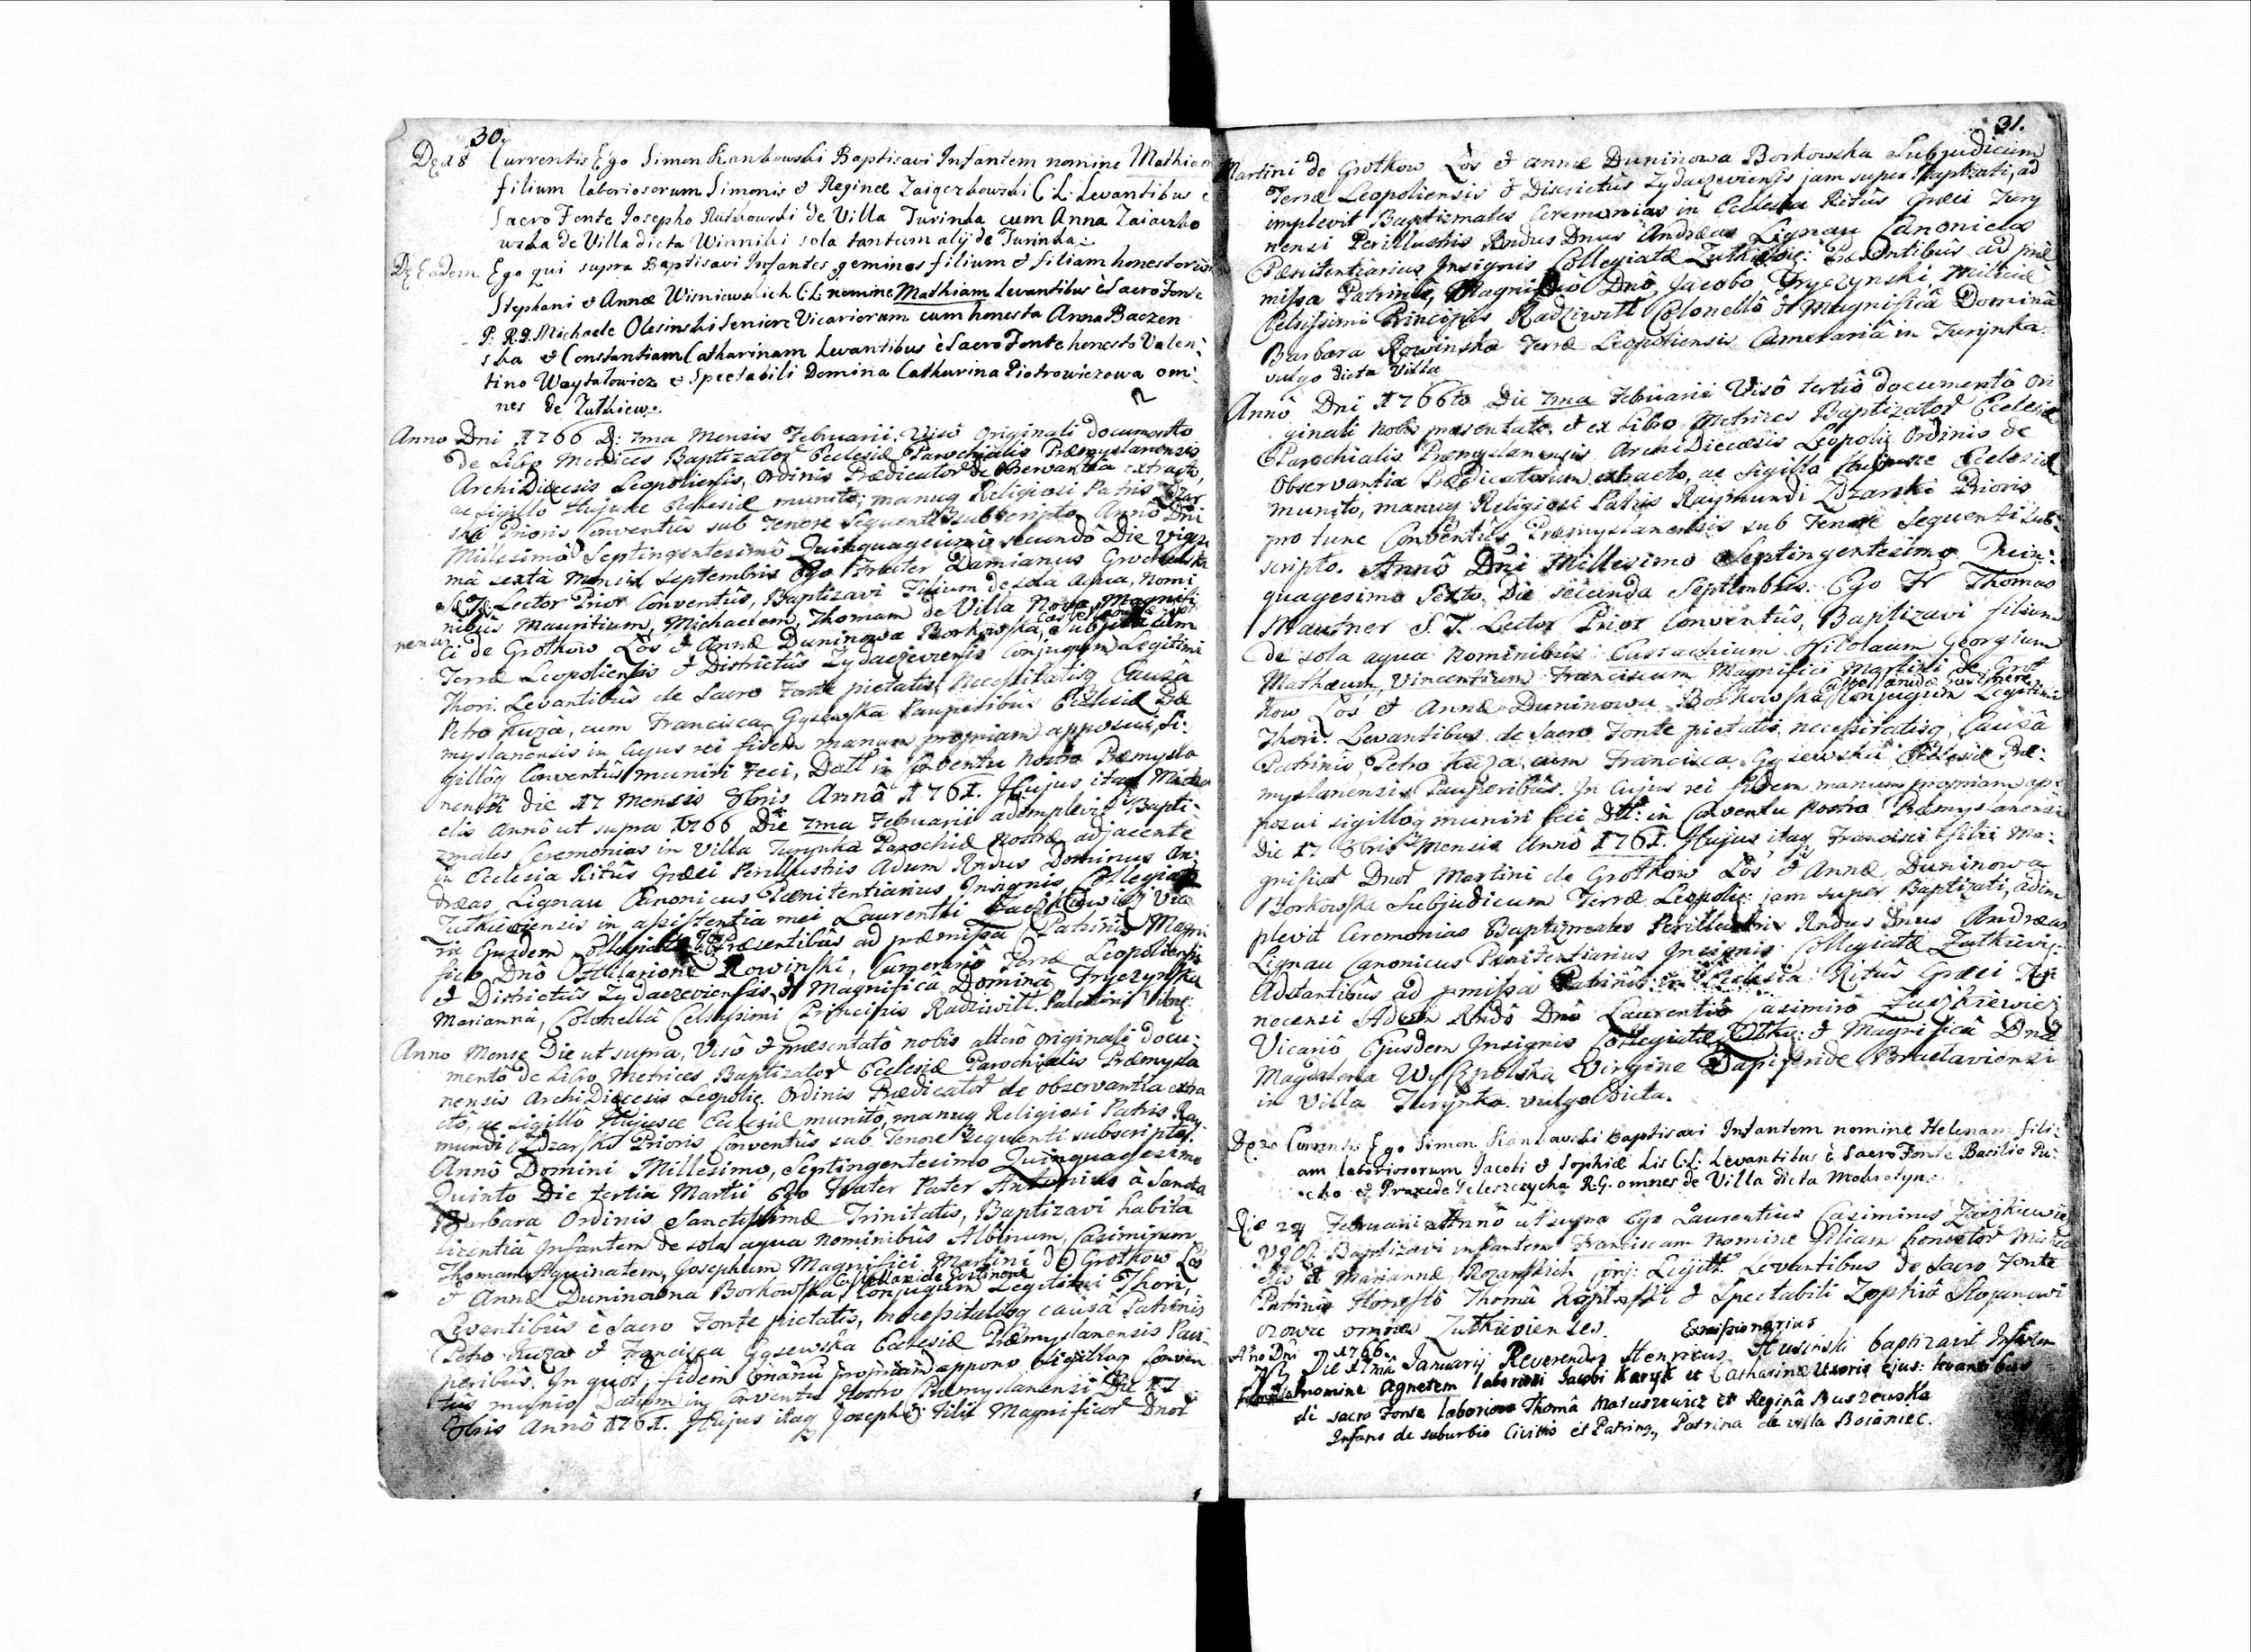 30.
D 18 Currentis Ego Simon Kankowski Baptisavi Infantem nomine Mathiam
filium laboriosorum Simonis & Reginæ Zaięczkowski C: L: Levantibus è
Sacro Fonte Josepho Rutkowski de Villa Turinka cum Anna Zaiaczko
wska de Villa dicta Winniki sola tantum alij de Turinka.
D Eadem Ego qui supra Baptisavi Infantes geminos filium & filiam honestorum
Stephani & Annæ Wisniewskich C L nomine Mathiam Levantibus è Sacro Fonte
P: R.D. Michaele Olesinski Seniore Vicariorum cum honesta Anna Baczen
ska & Constantiam Catharinam Levantibus è Sacro Fonte honesto Valen:
tino Woytalowicz & Spectabili Domina Catharina Piotrowiczowa om:
nes de Zulkiew.
Anno Dni 1766 D: 7ma Mensis Februarii. Visô Originali documento
de Libro Metrices Baptizator Ecclesiæ Parochialis Præmyslanensis
ArchiDiæcesis Leopoliensis, Ordinis Prædicator de observantia extracto,
ac sigillo Hujusce Ecclesiæ munito; manuq Religiosi Patris
ski Prioris Conventûs sub Tenore Sequenti subscripto. Anno Dni
Millesimô Septingentesimô Quinquagesimô secundô Die Vigesi
mâ sextâ Mensis Septembris Ego Frater Damianus
S: T: Lector Prior Conventûs, Baptizavi Filium de sola aqua, Nomi
nibûs Mauritium, Michaelem, Thomam de Villa Nova, Magnifi
ci de Grotkow Łôs & Annæ Duninowa Borkowska, Subjudicum
Terræ Leopoliensis & Districtûs Zydaczeviensis Conjugum Legitimi
Thori. Levantibûs de Sacro Fonte pietatis, Necessitatisq Causâ
Petro Kuza, cum Francisca Gęsewska Pauperibûs Ecclesiæ Præ
myslanensis in Cujus rei fidem manum propriam apposui, si:
gillôq Conventûs muniri Feci, Datt in Conventu Nostro Præmysla
nensi die 17 Mensis 8bris Annô 1761. Hujus itaq Micha
elis Annô ut supra 1766 Die 7ma Februarii adimplevit Bapti:
zmales Ceremonias in Villa Turynka Parochiæ Nostræ adjacente
in Ecclesia Ritûs Græci Perillustris Adum Rndus Dominus An:
dræas Lignau Canonicus Pænitentiarius Insignis Collegiatæ
Zulkieviensis in assistentia mei Laurentii Vica
rii Ejusdem Collegiatæ. Præsentibûs ad præmissa Patrinis Magni
fico Dnô Hilarione Rowinski, Camerariô Terræ Leopoliensis
& Districtûs Zydaczeviensis & Magnificâ Dominâ Fryczynska
Mariannâ, Colonellâ Celsissimi Principis Radziwill Palatini Viln:
Anno Mense Die ut supra, Visô & præsentatô nobis alterô originali docu:
mentô de Libro Metrices Baptizator Ecclesiæ Parochialis Præmysla
nensis ArchiDiæcesis Leopolie Ordinis Prædicator de observantia extra
ctô, ac sigillô Hujusce Ecclesiæ munitô, manuq Religiosi Patris Ray
mundi Zdzarski Prioris Conventûs sub Tenore Sequenti subscripto.
Annô Domini Millesimo, Septingentesimo Quinquagesimo
Quinto Die tertia Martii Ego Frater Pater Antonius à Sancta
Barbara Ordinis Sanctissimæ Trinitatis, Baptizavi habita
licentiâ Infantem de sola aqua nominibûs Albinum, Casimirum,
Thomam Aquinatem, Josephum Magnifici Martini de Grotkow Łôs
& Annæ Duninowna Borkowska Conjugum Legitimi Thori,
Levantibûs è Sacro Fonte pietatis, necessitatisq causâ Patrinis
Petro Kuza & Francisca Gęsewska Ecclesiæ Præmyslanensis Pau:
peribûs. In quor, fidem manû propriam appono sigilloq Conven
tus munio Datum in Conventu Nostro Præmyslanensi Die 17
8bris Annô 1761. Hujus itaq Josephi Filii Magnificor Dnor
31.
Martini de Grotkow Łôs & Annæ Duninowa Borkowska Subjudicum
Terræ Leopoliensis & Districtûs Zydaczeviensis jam super Baptizati, ad
implevit Baptizmales Ceremonias in Ecclesia Ritûs Græci Tury
nensi Perillustris Rndus Dnus Andræas Lignau Canonicus
Pænitentiarius Insignis Collegiatæ Zulkie: Præsentibûs ad præ
missa Patrinis, Magnifico Dnô Jacobo Fryczynski, Militiæ
Celsissimi Principis Radziwill Colonellô & Magnificâ Dominâ
Barbara Rowinska Terræ Leopoliensis Camerariâ in Turynka
vulgo dicta Villa
Annô Dni 1766to Die 7ma Februarii Visô tertiô documentô Ori
ginali Nobis præsentato & ex Libro Metrices Baptizator Ecclesiæ
Parochialis Premyslanensis ArchiDiæcesis Leopolie Ordinis de
Observantia Prædicatorum extracto, ac sigillo Hujusce Ecclesiæ
munito, manuq Religiosi Patris Raymundi Zdzarski Prioris
pro tunc Conventûs Præmyslanensis sub Tenore Sequenti sub:
scripto. Annô Dni Millesimo Septingentesimo Quin:
quagesimo Sexto Die secunda Septembris. Ego Fr Thomas
Mautner S. T. Lector Prior Conventûs, Baptizavi filium
de sola aqua Nominibus Eustachium Nicolaum Georgium
Mathæum, Vincentium Franciscum Magnifici Martini de Grot
kow Łôs & Annæ Duninowa Borkowska Conjugum Legitimi
Thori. Levantibus de Sacro Fonte pietatis necessitatisq, Causâ
Patrinis Petro Kuza, cum Francisca Gęsewska Ecclesiæ Præ:
myslanensis Pauperibûs. In Cujus rei fidem manum propriam ap:
posui sigilloq muniri feci Dtt: in Conventu Nostro Præmyslanensi
Die 17 8bris Mensis Annô 1761. Hujus itaq Francisci filii Ma:
gnificor Dnor Martini de Grotkow Łôs & Annæ Duninowa
Borkowska Subjudicum Terræ Leopolie: jam super Baptizati, adim
plevit Ceremonias Baptizmales Perillustris Rndus Dnus Andræas
Lignau Canonicus Pænitentiarius Insignis Collegiatæ Zulkievi:
Adstantibûs ad pmissa Patrinis in Ecclesia Ritûs Græci
necensi Adum Rndô Dnô Laurentiô Casimirô
Vicariô Ejusdem Insignis Collegiatæ & Magnificâ Dnâ
Magdalena Wyszpolska Virgine Dapiferide Braclaviensi
in Villa Turynka vulgo Dicta.
D 20 Currentis Ego Simon Kankowski Baptisavi Infantem nomine Helenam fili:
am laboriosorum Jacobi & Sophiæ Lis C: L: Levantibus è Sacro Fonte Basilio Pu:
cko & Praxede Teleszczycha R.G. omnes de Villa dicta Mokrotyn.
Die 24 Februarii Annô ut supra Ego Laurentius Casimirus
Baptizavi infantem Franciscam nomine filiam honestor Micha
elis & Mariannæ Conj: Legitt. Levantibus de Sacro Fonte
Patrinis Honestô Thomâ & Spectabili Zophiâ Stojanowi
czowa omnes Zulkievienses. Exmissionarius
Año Dni 1766. Die 17mâ Januarij Reverendus Henricus Husinski baptizavit Infan
nomine Agnetem laboriosi Jacobi Karyk et Catharinæ Uxoris ejus: levantibus
di sacro Fonte laborioso Thomâ Matuszewicz et Reginâ Buszewska
Infans de suburbio Civittis et Patrinq, Patrina de villa Boianiec.